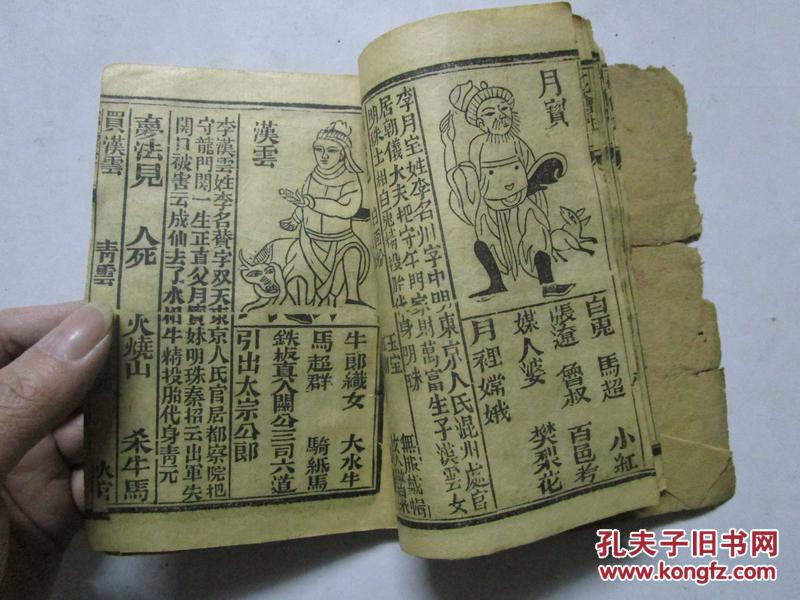 月寶
白兎 馬超 小紅
張遼 魯叔 百邑考
媒人婆 樊梨花
月裡嫦娥
李月宝姓李名川字中明東京人氏混州處官
居朝儀大夫把守午門家財萬富生子漢雲女
明珠
玉宝
漢雲
牛郎織女 大水牛
馬超群 騎紙馬
鉄板真人關公三司六道
引出太宗公郎
李漢雲姓李名賛字双天東京人氏官居都察院把
守龍門関一生正直父月寳妹明珠秦招云出軍失
関口被害云成仙去了水相牛精投胎代身青元
夢法見 人死 火燒山 杀牛馬
買漢雲 青雲
孔夫子旧书网
www.kongfz.com